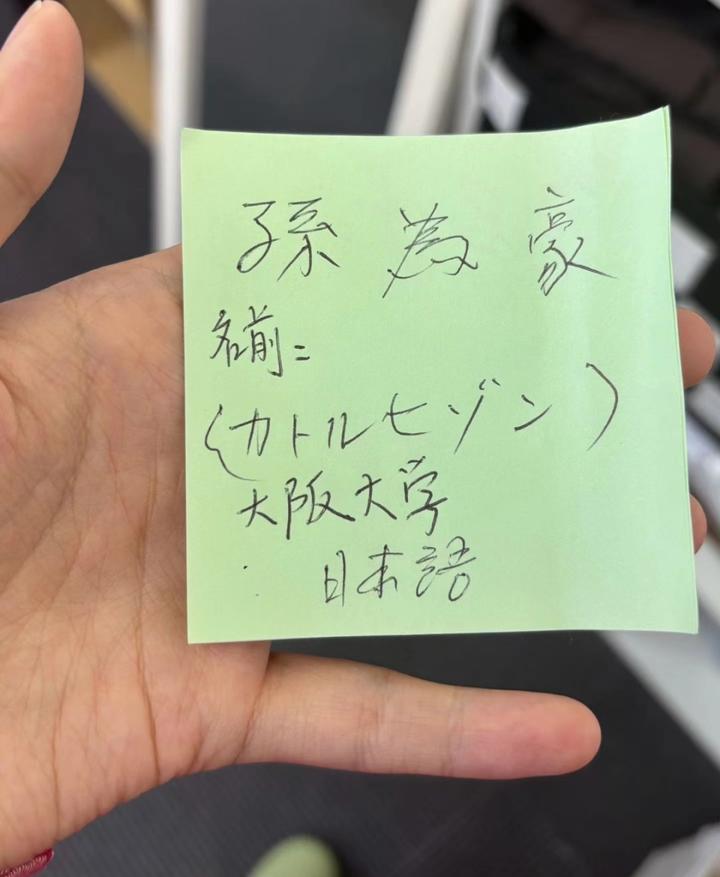 孫 為 豪
名前:
(カトルセゾン)
大阪大学
日本語